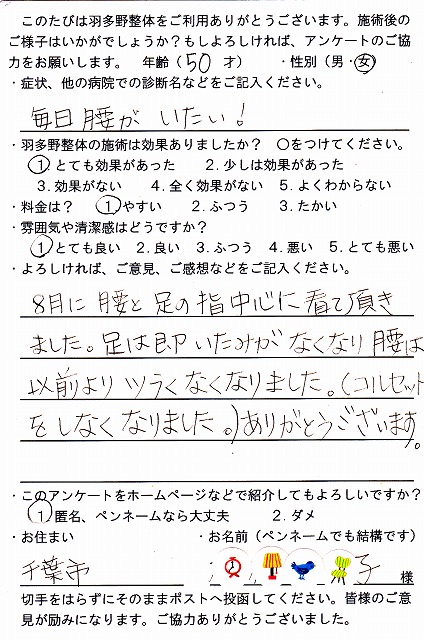 このたびは羽多野整体をご利用ありがとうございます。施術後の
ご様子はいかがでしょうか？もしよろしければ、アンケートのご協
力をお願いします。　年齢（50 才）　・性別（男・女）
・症状、他の病院での診断名などをご記入ください。
毎日腰が いたい！
・羽多野整体の施術は効果ありましたか？　〇をつけてください。
1. とても効果があった　2. 少しは効果があった
3. 効果がない　4. 全く効果がない　5. よくわからない
・料金は？　1. やすい　2. ふつう　3. たかい
・雰囲気や清潔感はどうですか？
1 とても良い　2. 良い　3. ふつう　4. 悪い　5. とても悪い
・よろしければ、ご意見、ご感想などをご記入ください。
8月に 腰と 足の指中心に 看て頂き
ました。足は即 いたみが なくなり 腰は
以前より ツラくなくなりました。（コルセット
をしなくなりました。）ありがとうございます。
・このアンケートをホームページなどで紹介してもよろしいですか？
1. 匿名、ペンネームなら大丈夫　2. ダメ
・お住まい　・お名前（ペンネームでも結構です）
千葉市　子 様
切手をはらずにそのままポストへ投函してください。皆様のご意
見が励みになります。ご協力ありがとうございました。